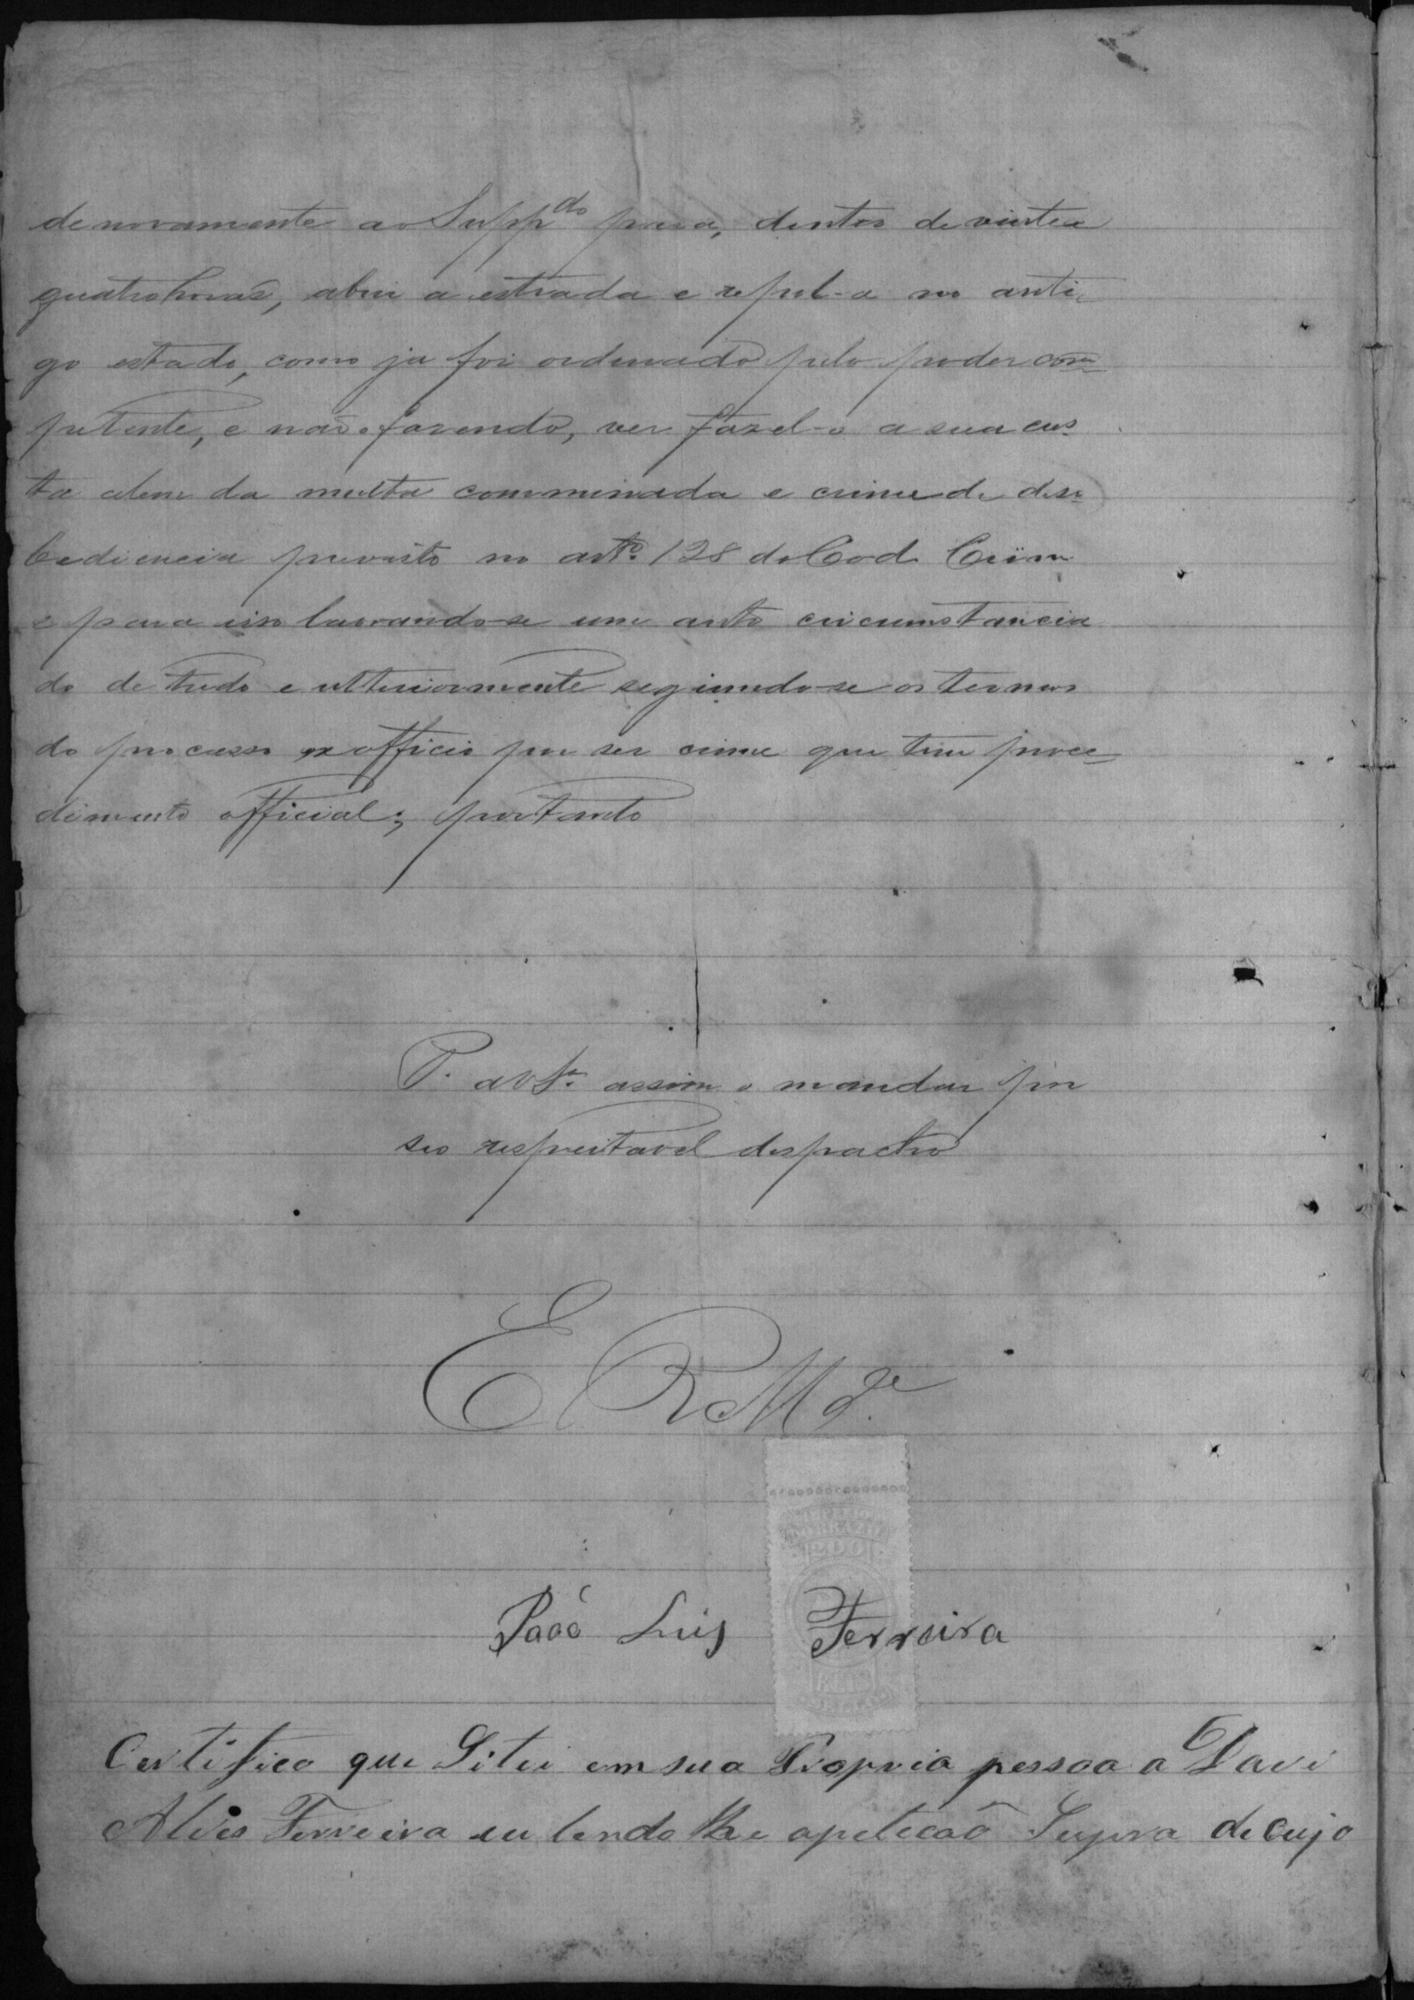 de novamente ao Supp.do para, dentro de vinte e
quatro horas, abrir a estrada e repol-a no anti-
go estado, como ja foi ordenado pelo poder com-
petente, e não o fazendo, ver fazel-o a sua cus
ta alem da multa comminada e crime de deso-
bediencia previsto no art.º 128 do Cod. Crim
e para isso lavrando-se um auto circumstancia
do de tudo e ulteriormente seguindo-se os termos
do processo ex officio por ser crime que tem proce-
dimento official; portanto
P. a V S.a assim o mandar por
seo respeitavel despacho
E R M.ce
200
REIS
Paoó Luis Ferreira
Certifico que Sitei em sua Propria pessoa a Davi
Alves Ferreira eu lendo lhe apeticaõ Supra de cujo